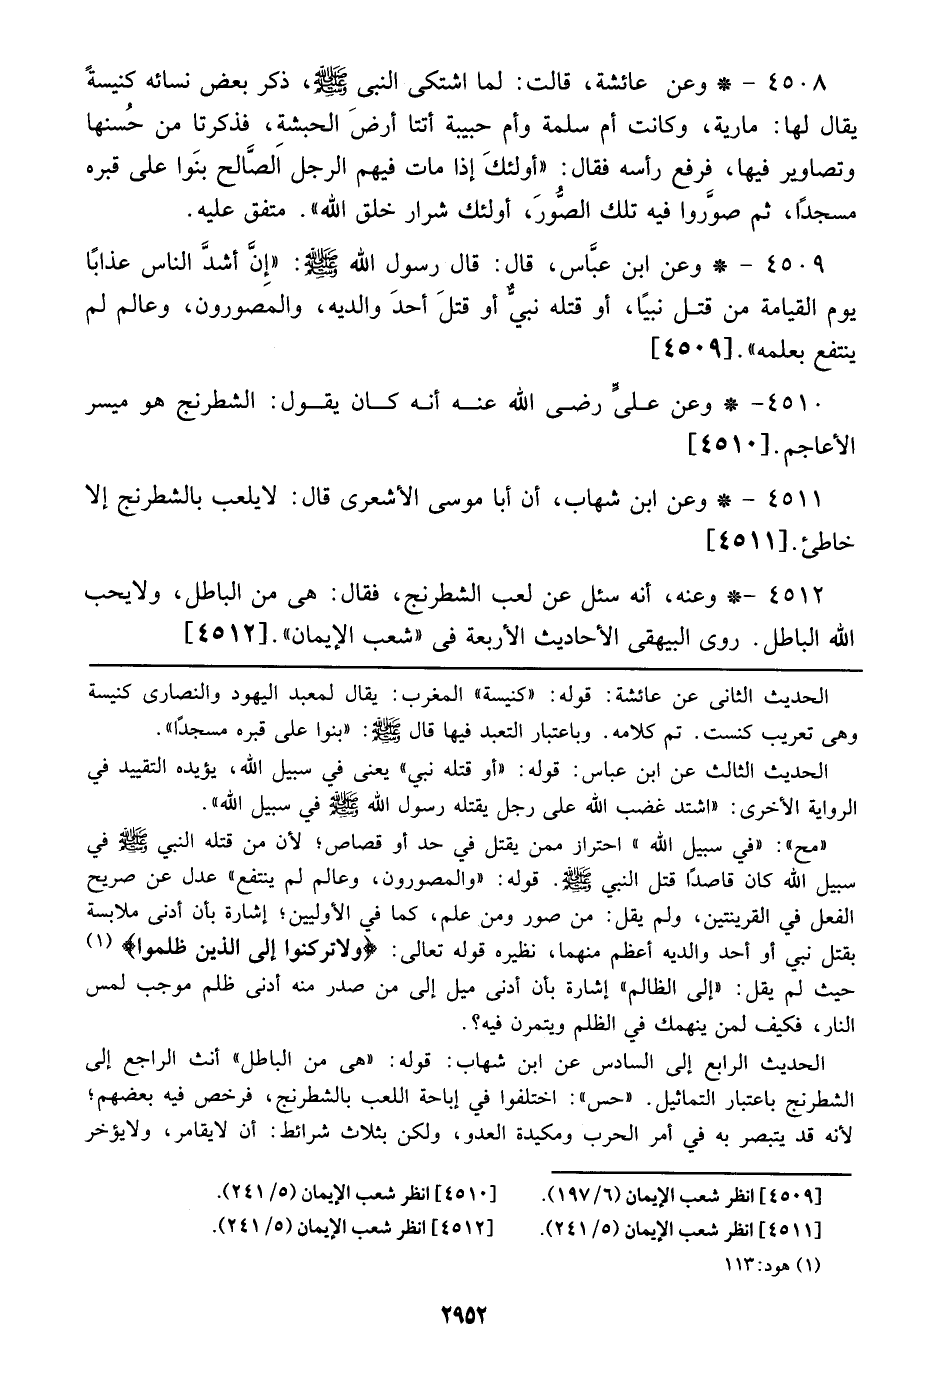 ٤٥٠٨ - * وعن عائشة، قالت: لما اشتكى النبى ﷺ، ذكر بعض نسائه كنيسةً
يقال لها: مارية، وكانت أم سلمة وأم حبيبة أتتا أرضَ الحبشةِ، فذكرتا من حُسنها
وتصاوير فيها، فرفع رأسه فقال: «أولئكَ إذا مات فيهم الرجل الصَّالح بنَوا على قبره
مسجدًا، ثم صوَّروا فيه تلك الصُّورَ، أولئك شرار خلق الله». متفق عليه.
٤٥٠٩ - * وعن ابن عبَّاس، قال: قال رسول الله ﷺ: «إِنَّ أشدَّ الناس عذابًا
يوم القيامة من قتـل نبيًا، أو قتله نبيٌّ أو قتلَ أحدَ والديه، والمصورون، وعالم لم
ينتفع بعلمه».[٤٥٠٩]
٤٥١٠- * وعن علـىٍّ رضـى الله عنـه أنـه كـان يقـول: الشطرنج هو ميسر
الأعاجم.[٤٥١٠]
٤٥١١ - * وعن ابن شهاب، أن أبا موسى الأشعرى قال: لايلعب بالشطرنج إلا
خاطئ.[٤٥١١]
٤٥١٢ -* وعنه، أنه سئل عن لعب الشطرنج، فقال: هى من الباطل، ولايحب
الله الباطل. روى البيهقى الأحاديث الأربعة فى «شعب الإيمان».[٤٥١٢]
الحديث الثانى عن عائشة: قوله: «كنيسة» المغرب: يقال لمعبد اليهود والنصارى كنيسة
وهى تعريب كنست. تم كلامه. وباعتبار التعبد فيها قال ﷺ: «بنوا على قبره مسجدًا».
الحديث الثالث عن ابن عباس: قوله: «أو قتله نبي» يعنى في سبيل الله، يؤيده التقييد في
الرواية الأخرى: «اشتد غضب الله على رجل يقتله رسول الله ﷺ في سبيل الله».
«مح»: «في سبيل الله » احتراز ممن يقتل في حد أو قصاص؛ لأن من قتله النبي ﷺ في
سبيل الله كان قاصدًا قتل النبي ﷺ. قوله: «والمصورون، وعالم لم ينتفع» عدل عن صريح
الفعل في القرينتين، ولم يقل: من صور ومن علم، كما في الأوليين؛ إشارة بأن أدنى ملابسة
بقتل نبي أو أحد والديه أعظم منهما، نظيره قوله تعالى: ﴿ولاتركنوا إلى الذين ظلموا﴾ (١)
حيث لم يقل: «إلى الظالم» إشارة بأن أدنى ميل إلى من صدر منه أدنى ظلم موجب لمس
النار، فكيف لمن ينهمك في الظلم ويتمرن فيه؟.
الحديث الرابع إلى السادس عن ابن شهاب: قوله: «هى من الباطل» أنث الراجع إلى
الشطرنج باعتبار التماثيل. «حس»: اختلفوا في إباحة اللعب بالشطرنج، فرخص فيه بعضهم؛
لأنه قد يتبصر به في أمر الحرب ومكيدة العدو، ولكن بثلاث شرائط: أن لايقامر، ولايؤخر
[٤٥٠٩] انظر شعب الإيمان (٦/ ١٩٧). [٤٥١٠] انظر شعب الإيمان (٥/ ٢٤١).
[٤٥١١] انظر شعب الإيمان (٥/ ٢٤١). [٤٥١٢] انظر شعب الإيمان (٥/ ٢٤١).
(١) هود: ١١٣
٢٩٥٢